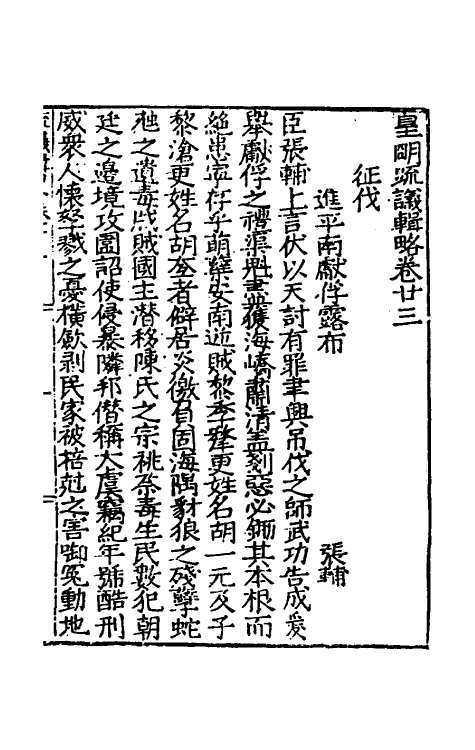 皇明疏議輯略卷廿三
征伐
進平南獻俘露布
張輔
臣張輔上言伏以天討有罪聿興吊伐之師武功告成爰
舉獻俘之禮渠魁盡獲海嶠肅清蓋剗惡必鋤其本根而
絕患寔存乎萌孽安南逆賊黎季犛更姓名胡一元及子
黎滄更姓名胡𡗨者僻居炎徼負固海隅豺狼之殘孽蛇
虺之遺毒戕賊國主潛移陳氏之宗祧荼毒生民數犯朝
廷之邉境攻圍詔使侵暴隣邦僣稱大虞竊紀年號酷刑
威衆人懷孥戮之憂橫斂剥民家被掊尅之害啣冤動地